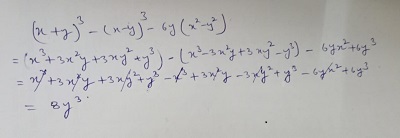 (x+y)³ - (x-y)³ - 6y(x²-y²)
= (x³+3x²y+3xy²+y³) - (x³-3x²y+3xy²-y³) - 6yx²+6y³
= x³+3x²y+3xy²+y³-x³+3x²y-3xy²+y³-6yx²+6y³
= 8y³.